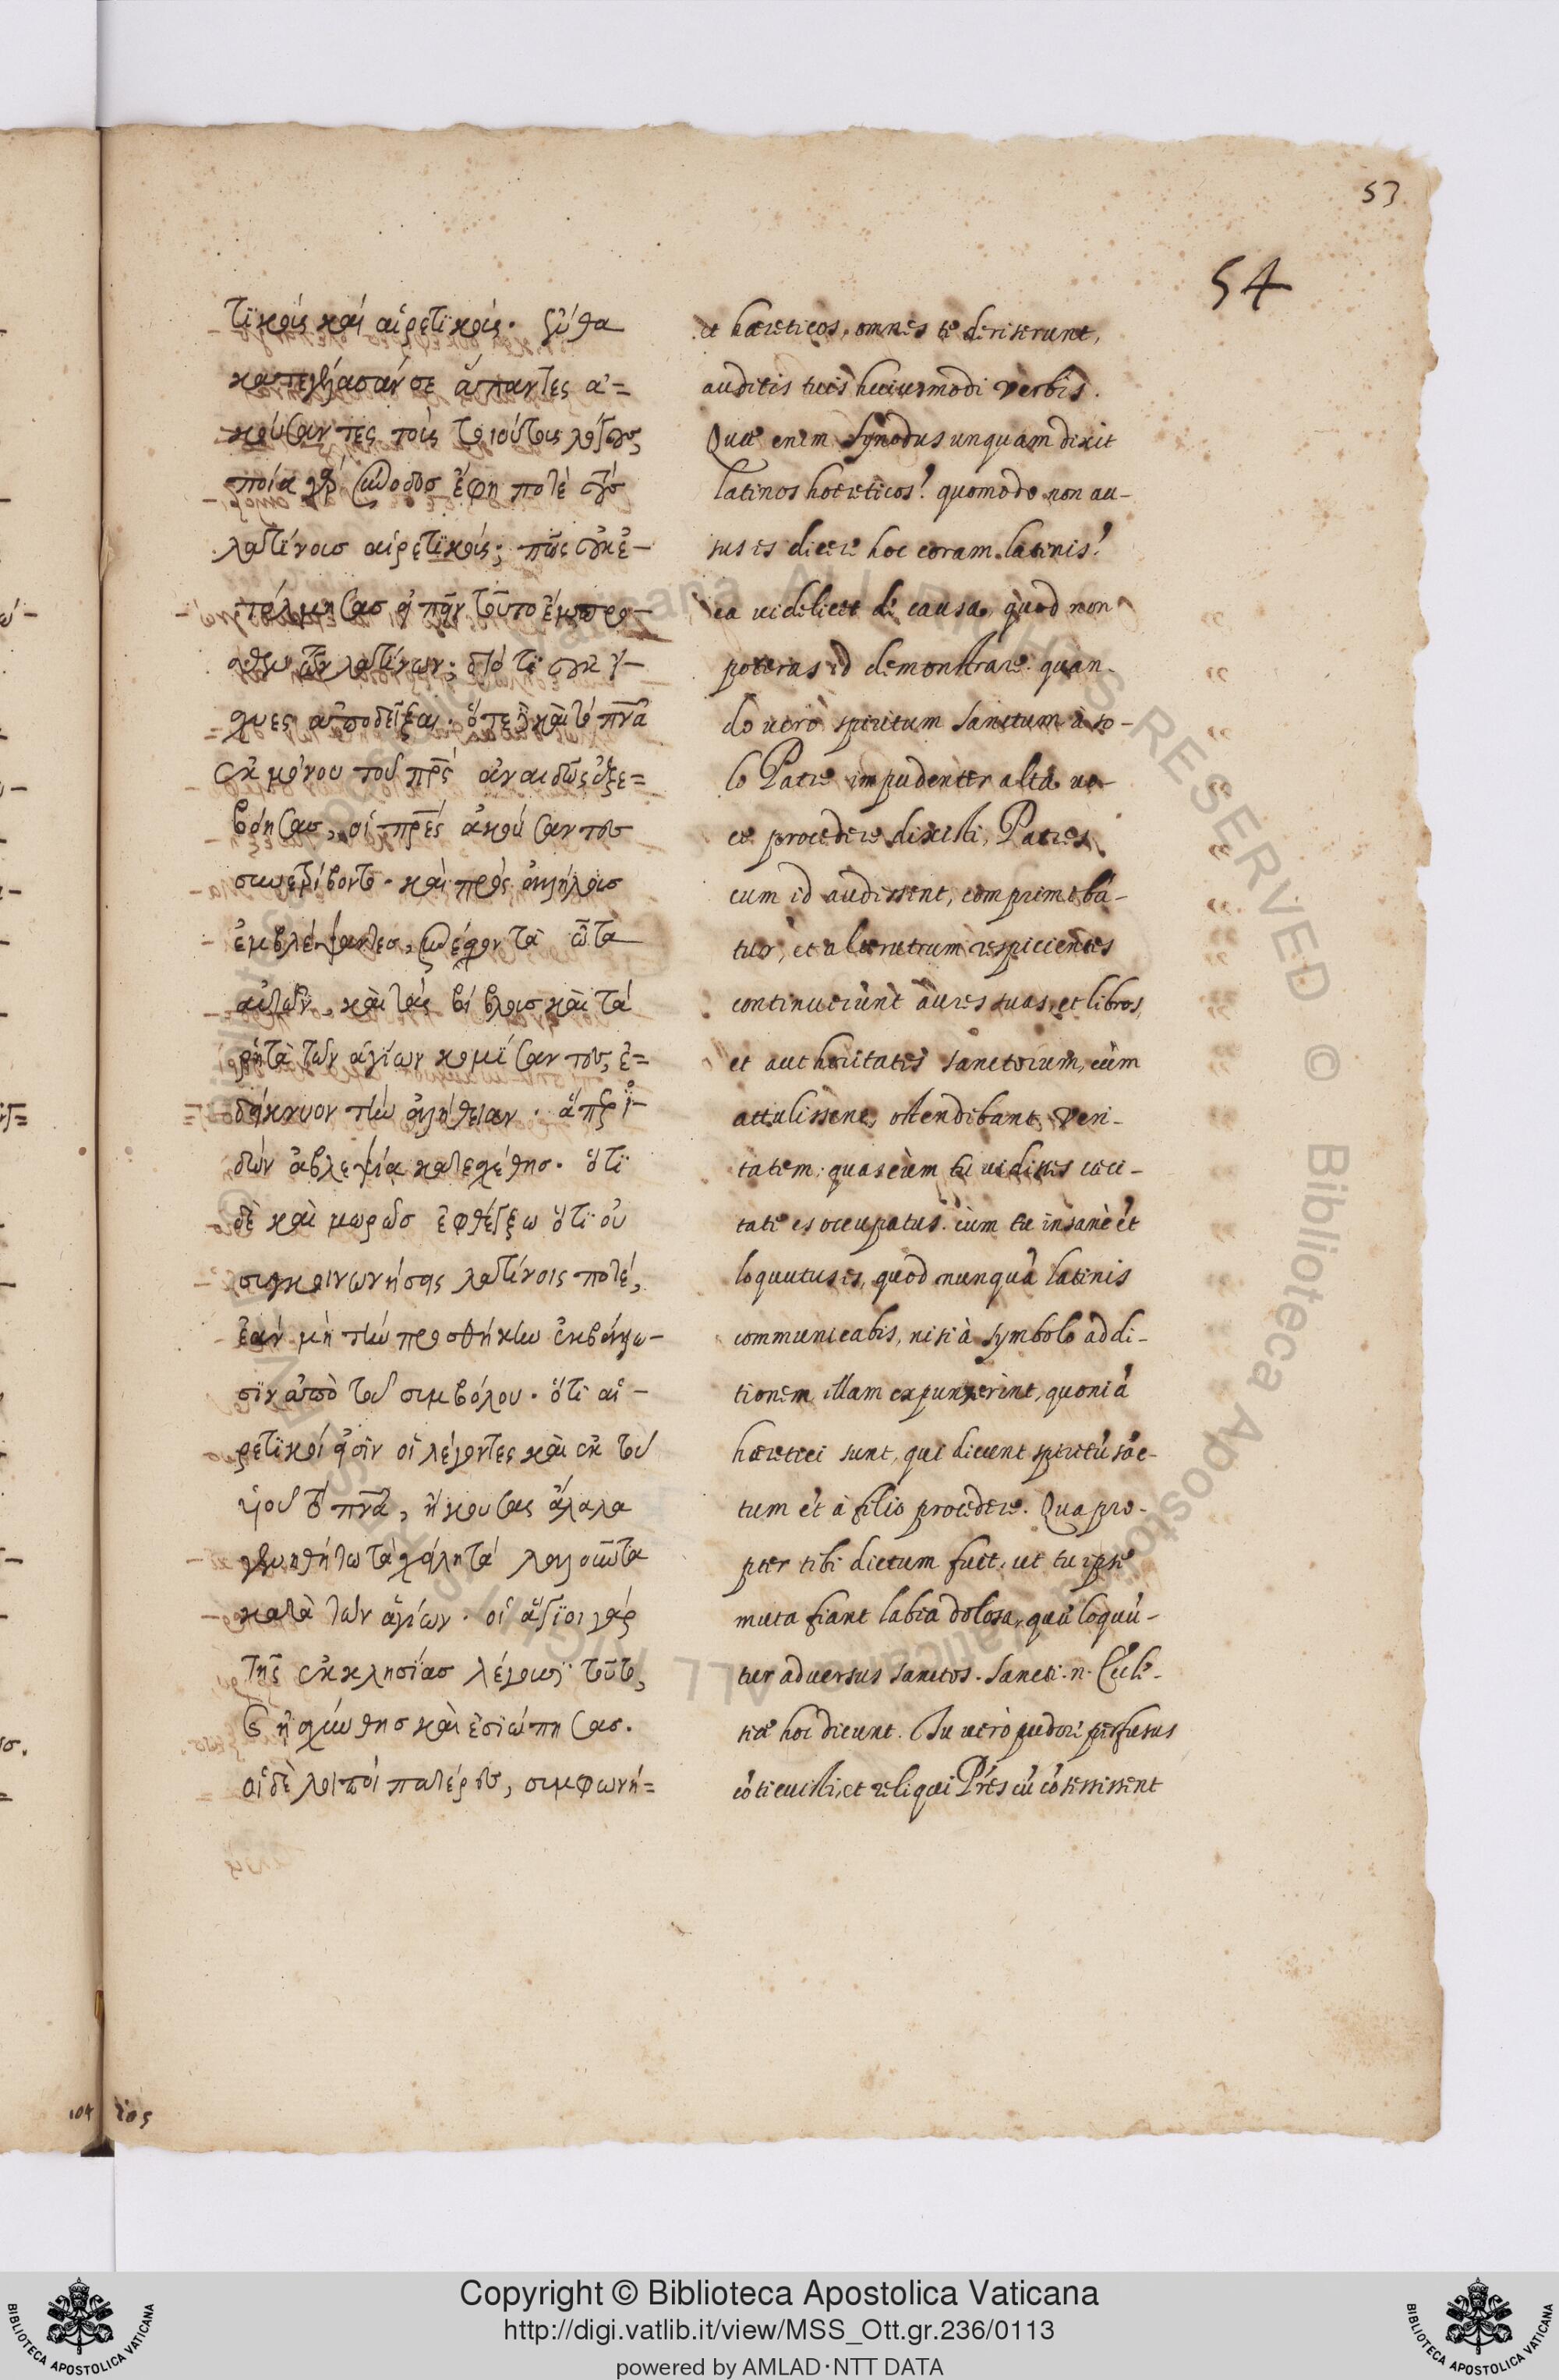 53
54
τικοὺς καὶ αἱρετικούς. ἔνθα
κατεγέλασάν σε ἅπαντες ἀ=
κούσαντες τοῖς τοιούτοις λόγοις
ποία γὰρ σύνοδος ἔφη ποτὲ τοὺς
λατίνους αἱρετικούς; πῶς οὐκ ἐ-
τόλμησας εἰπεῖν τοῦτο ἔμπρο-
σθεν τῶν λατίνων; διότι οὐκ ἴ-
χυες ἀποδεῖξαι. ὅτε δὲ καὶ τὸ πνα
ἐκ μόνου τοῦ πρς ἀναιδῶς ἐξε=
βόησας, οἱ πρες ἀκούσαντες
συνετρίβοντο. καὶ πρὸς ἀλλήλους
ἐμβλέψαντες, τὰ ὦτα
αὐτῶν, καὶ τὰς βίβλους καὶ τὰ
ῥητὰ τῶν ἁγίων κομίσαντες, ἐ=
δείκνυον τὴν ἀλήθειαν. ἅπερ ἰ-
δὼν ἀβλεψία κατεσχέθης. ὅτι
δὲ καὶ μωρῶς ἐφθέγξω ὅτι οὐ
συγκοινωνήσῃς λατίνοις ποτέ,
ἐὰν μὴ τὴν προσθήκην ἐκβάλω-
σιν ἀπὸ τοῦ συμβόλου. ὅτι αἱ-
ρετικοί εἰσιν οἱ λέγοντες καὶ ἐκ τοῦ
υἱοῦ τὸ πνα, ἤκουσας ἄλαλα
γενηθήτω τὰ χείλη τὰ λαλοῦντα
κατὰ τῶν ἁγίων. οἱ ἅγιοι γὰρ
τῆς ἐκκλησίας λέγουσι τοῦτο,
σὺ ᾐσχύνθης καὶ ἐσιώπησας.
οἱ δὲ λοιποὶ πατέρες, συμφωνή=
et hæreticos, omnes te deriserunt,
auditis tuis huiusmodi verbis.
Quæ enim synodus unquam dixit
latinos hæreticos? quomodo non au-
sus es dicere hoc coram latinis?
ea videlicet de causa, quod non
poteras id demonstrare. quan-
do vero spiritum sanctum à so-
lo Patre impudenter alta vo-
ce procedere dixisti, Patres
cum id audissent, comprimeba-
tur, et alterutrum respicientes
continuerunt aures suas, et libros,
et authoritates sanctorum, cùm
attulissent, ostendebant veri-
tatem: quas cùm tu vidisses cæci-
tate es occupatus. cùm tu insanè et
loquutus es, quod nunquã latinis
communicabis, nisi à symbolo addi-
tionem illam expunxerint, quoniã
hæretici sunt, qui dicunt spiritũ sãc-
tum et à filio procedere. Quapro-
pter tibi dictum fuit, ut tu ipse
muta fiant labia dolosa, quæ loquũ-
tur adversus sanctos. Sancti .n. Eccle-
siæ hoc dicunt. Tu verò pudore perfusus
cõticuisti, et reliqui Pres cũ cõsensissent
104 105
Copyright © Biblioteca Apostolica Vaticana
http://digi.vatlib.it/view/MSS_Ott.gr.236/0113
powered by AMLAD·NTT DATA